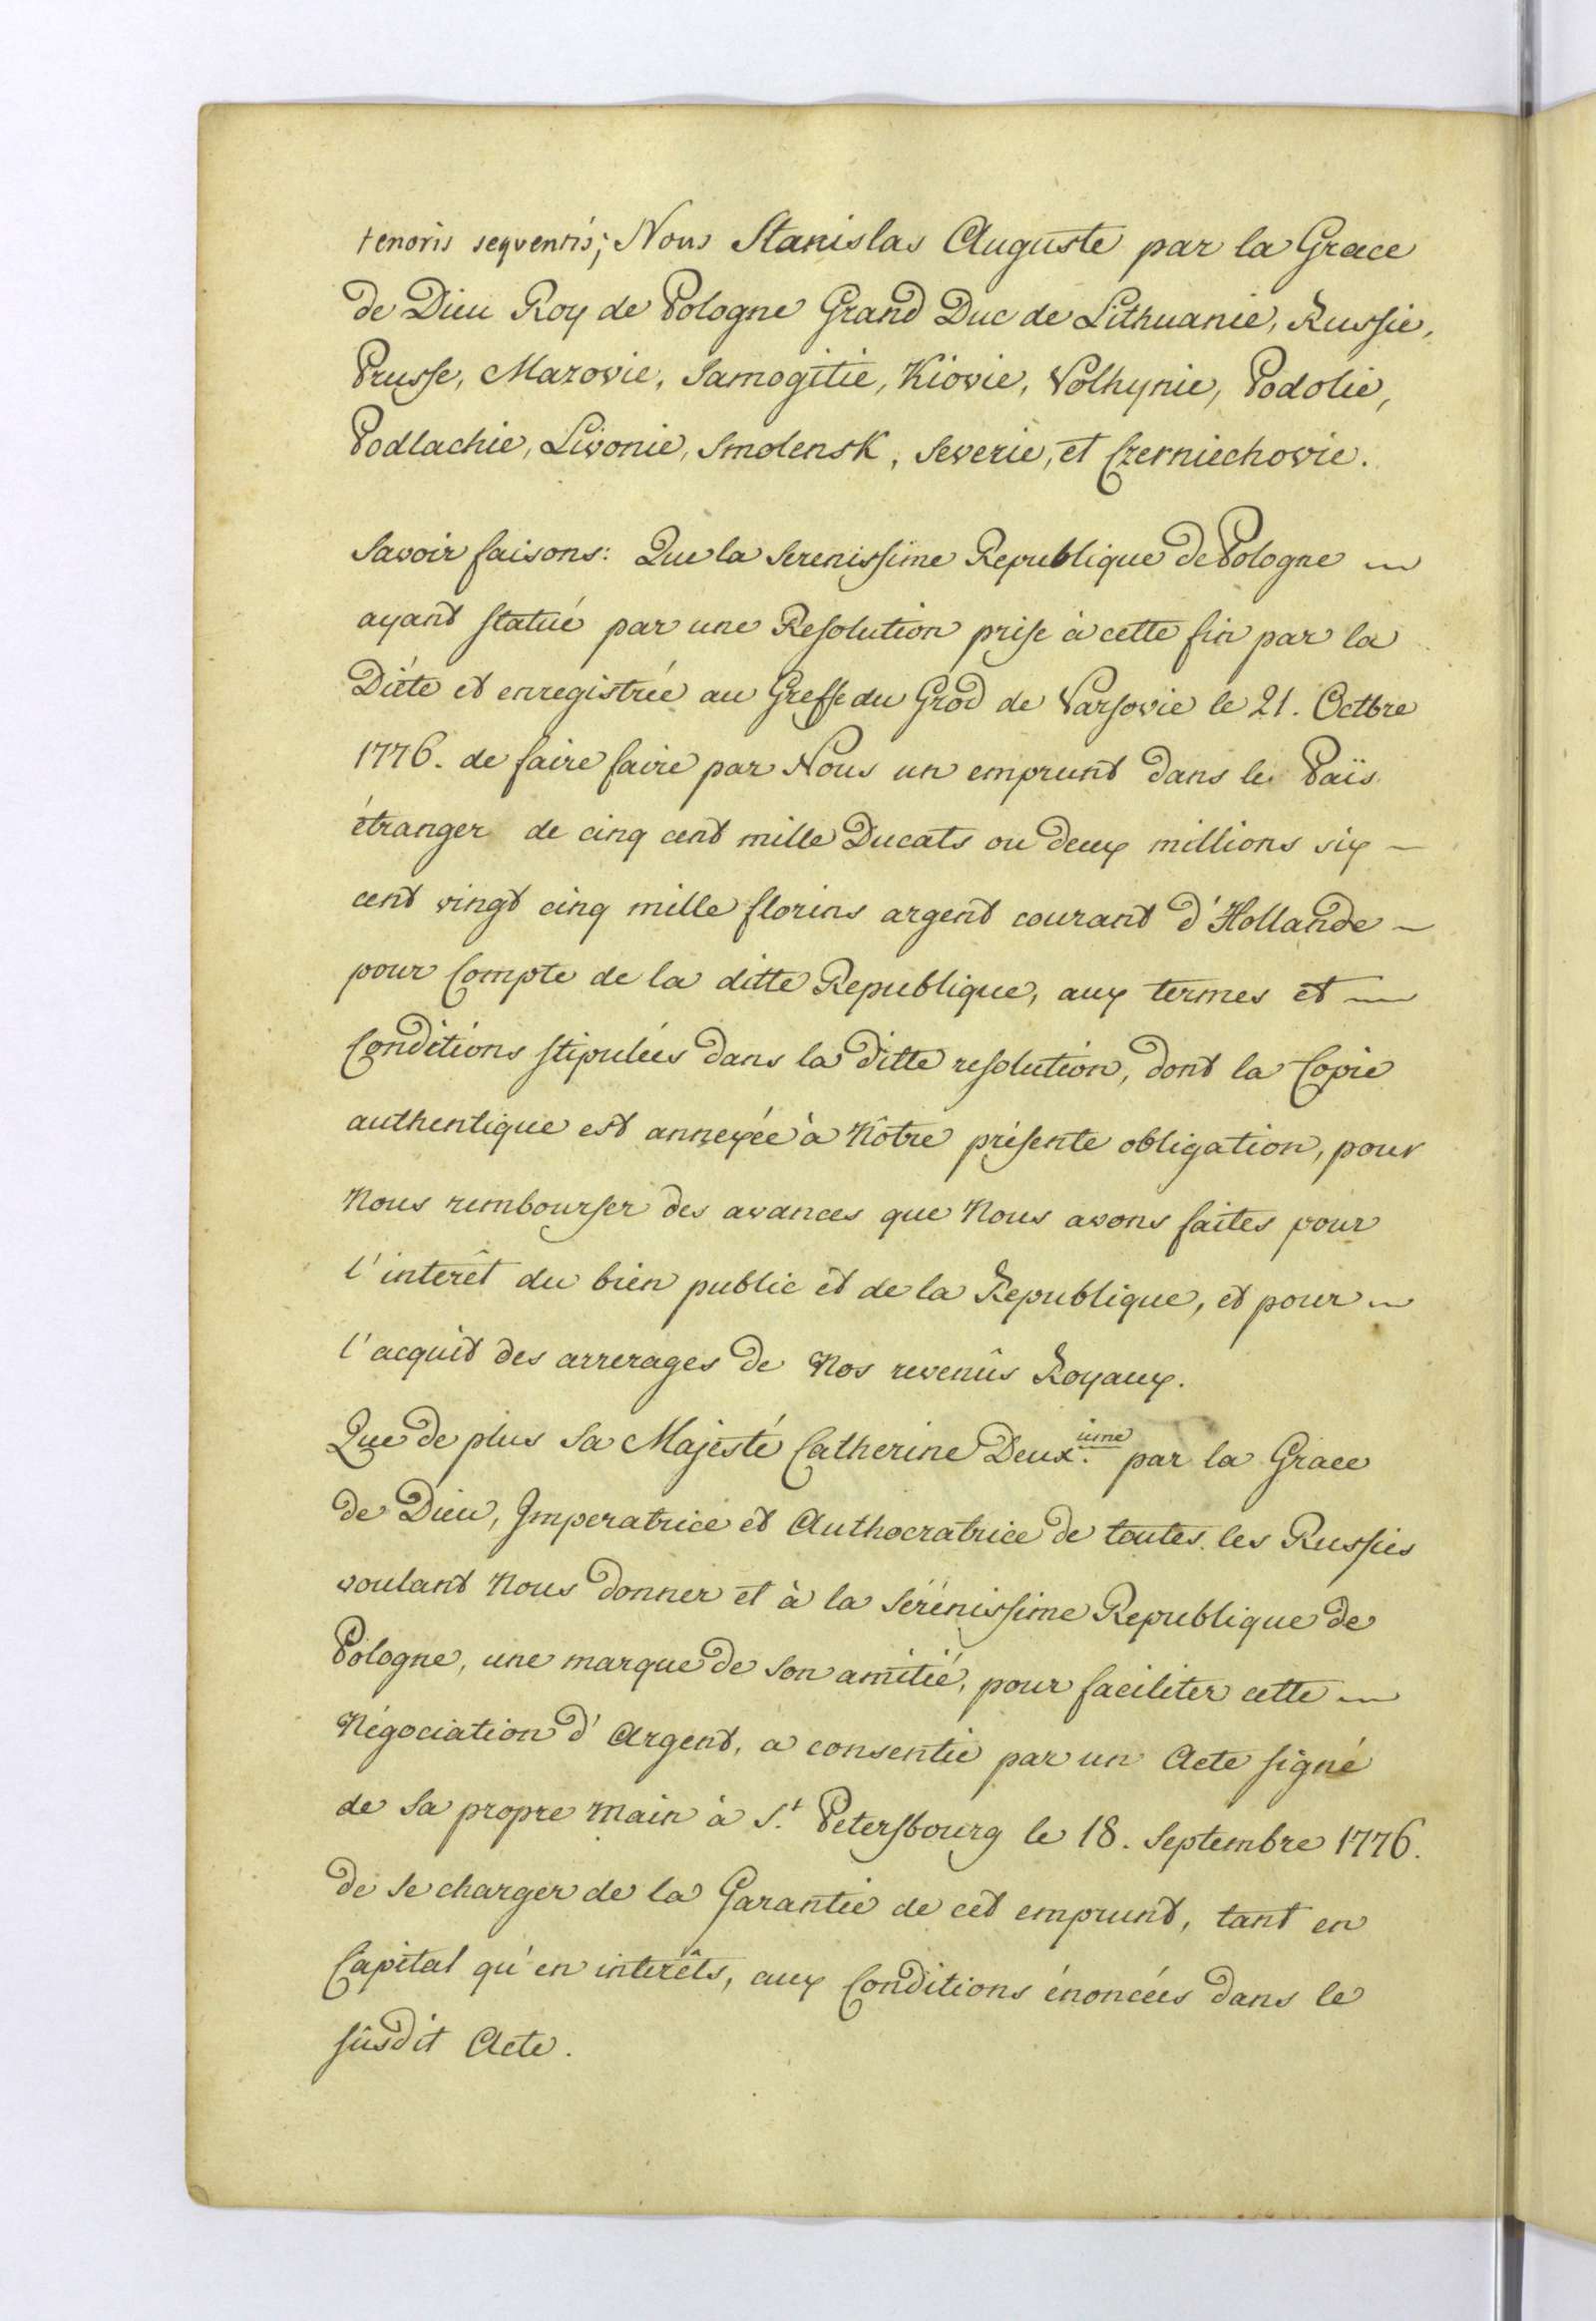 tenoris seqventis; Nous Stanislas Auguste par la Grace
de Dieu Roy de Pologne Grand Duc de Lithuanie, Russie,
Prusse, Mazovie, Samogitie, Kiovie, Volhynie, Podolie,
Podlachie, Livonie, Smolensk, Severie, et Czerniechovie.
Savoir faisons: Que la Serenissime Republique de Pologne
ayant statué par une Resolution prise à cette fin par la
Diéte et enregistrée au Greffe du Grod de Varsovie le 21. Octbre
1776. de faire faire par Nous un emprunt dans le Païs
étranger de cinq cent mille Ducats ou deux millions six
cent vingt cinq mille florins argent courant d'Hollande
pour Compte de la ditte Republique, aux termes et
Conditions stipulées dans la ditte resolution, dont la Copie
authentique est annexée à Nôtre présente obligation, pour
Nous rembourser des avances que Nous avons faites pour
l'interêt du bien public et de la Republique, et pour
l'acquit des arrerages de Nos revenûs Royaux.
Que de plus Sa Majesté Catherine Deux.ième par la Grace
de Dieu, Imperatrice et Authocratrice de toutes les Russies
voulant Nous donner et à la Sérénissime Republique de
Pologne, une marque de Son amitié, pour faciliter cette
Négociation d'Argent, a consentie par un Acte signé
de Sa propre Main à S.t Petersbourg le 18. Septembre 1776.
de se charger de la Garantie de cet emprunt, tant en
Capital qu'en interêts, aux Conditions énoncées dans le
sûsdit Acte.